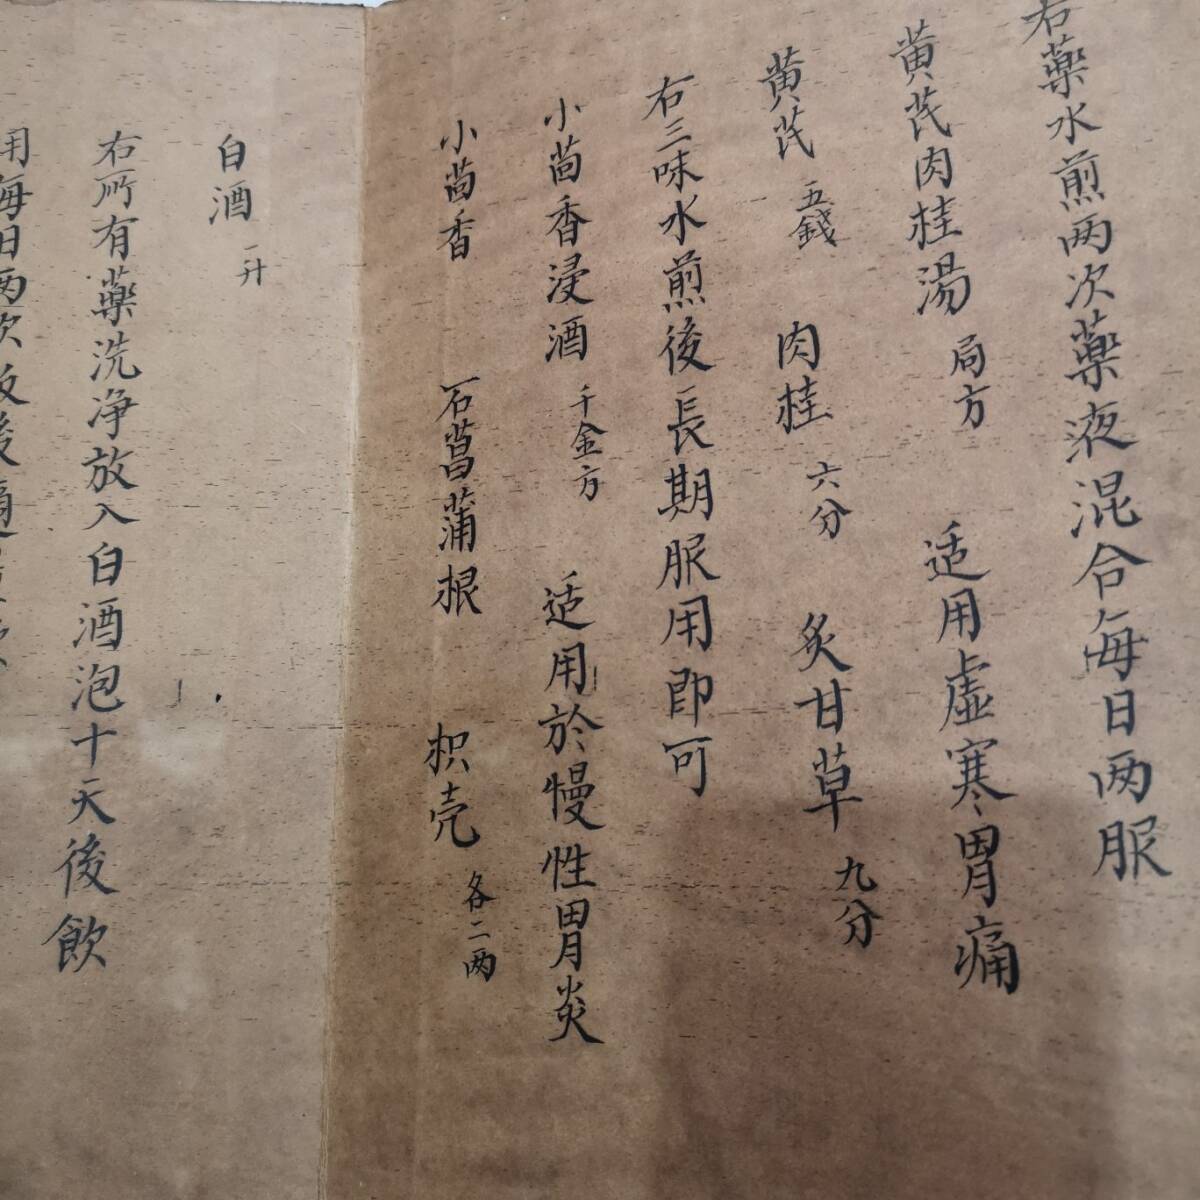 右藥水煎两次藥液混合每日两服
黄芪肉桂湯 局方 适用虛寒胃痛
黄芪 五錢 肉桂 六分 炙甘草 九分
右三味水煎後長期服用即可
小茴香浸酒 千金方 适用於慢性胃炎
小茴香 石菖蒲根 枳壳 各二两
白酒 一升
右所有藥洗净放入白酒泡十天後飲
用每日两次饭後適